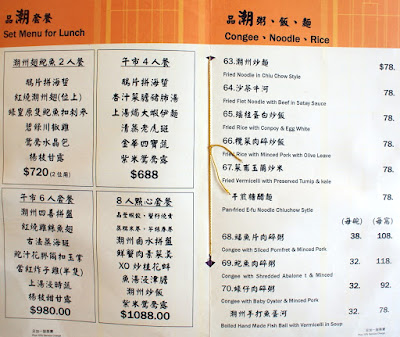 品潮套餐
Set Menu for Lunch
潮州麵鮑魚2人餐
鵝片拼海蜇
紅燒潮州翅(位上)
碧綠川椒雞
鴛鴦水晶包
楊枝甘露
$720(2位用)
午市4人餐
鵝片拼海蜇
上湯焗大蝦伊麵
清蒸老虎斑
金華四寶蔬
紫米鴛鴦露
$688
午市6人套餐
潮州四喜拼盤
紅燒雞絲魚翅
古法蒸海班
當紅炸子雞(半隻)
上湯浸時蔬
楊枝甘露
$980.00
8人點心套餐
潮州滷水拼盤
鮮蟹肉素菜羹
XO炒桂花蚌
魚湯浸津膽
潮州炒飯
紫米鴛鴦露
$1088.00
品潮粥、飯、麵
Congee、Noodle、Rice
63.潮州炒麵 $78.
Fried Noodle in Chiu Chow Style
64.沙茶牛河 78.
Fried Flat Noodle with Beef in Satay Sauce
65.瑤柱蛋白炒飯 78.
Fried Rice with Conpoy & Egg White
66.欖菜肉碎炒飯 78.
Fried Rice with Minced Pork with Olive Leave
67.菜甫玉蘭炒米 78.
Fried Vermicelli with Preserved Turnip & Kale
干煎糖醋麵 78.
Pan-fried E-fu Noodle Chiuchow Sytle
(每碗) (每窩)
68.鯧魚片肉碎粥 38. 108.
Congee with Sliced Pomfret & Minced Pork
69.鮑魚肉碎粥 32. 118.
Congee with Shredded Abalone & Minced
70.蠔仔肉碎粥 32. 92.
Congee with Baby Oyster & Minced Pork
潮州手打魚蛋河 32. 78.
Boiled Hand Made Fish Ball with Vermicelli in Soup